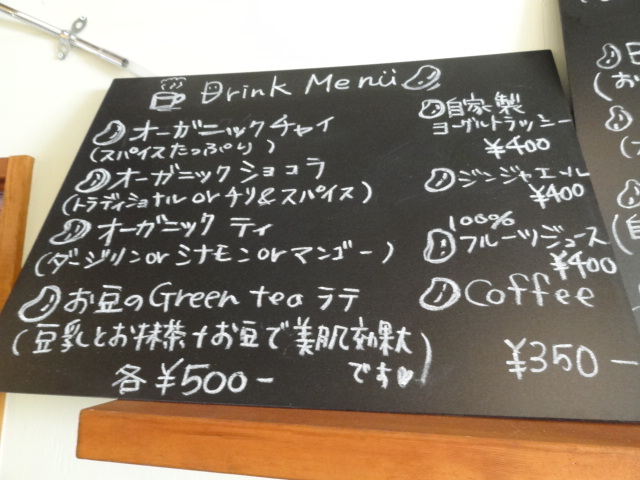 Drink Menü
オーガニックチャイ
(スパイスたっぷり)
オーガニックショコラ
(トラディショナル or チリ&スパイス)
オーガニック ティ
(ダージリン or シナモン or マンゴー)
お豆のGreen tea ラテ
(豆乳とお抹茶+お豆で美肌効果大
です♡)
各¥500-
自家製
ヨーグルトラッシー
¥400
ジンジャエール
¥400
100%
フルーツジュース
¥400
Coffee
¥350-